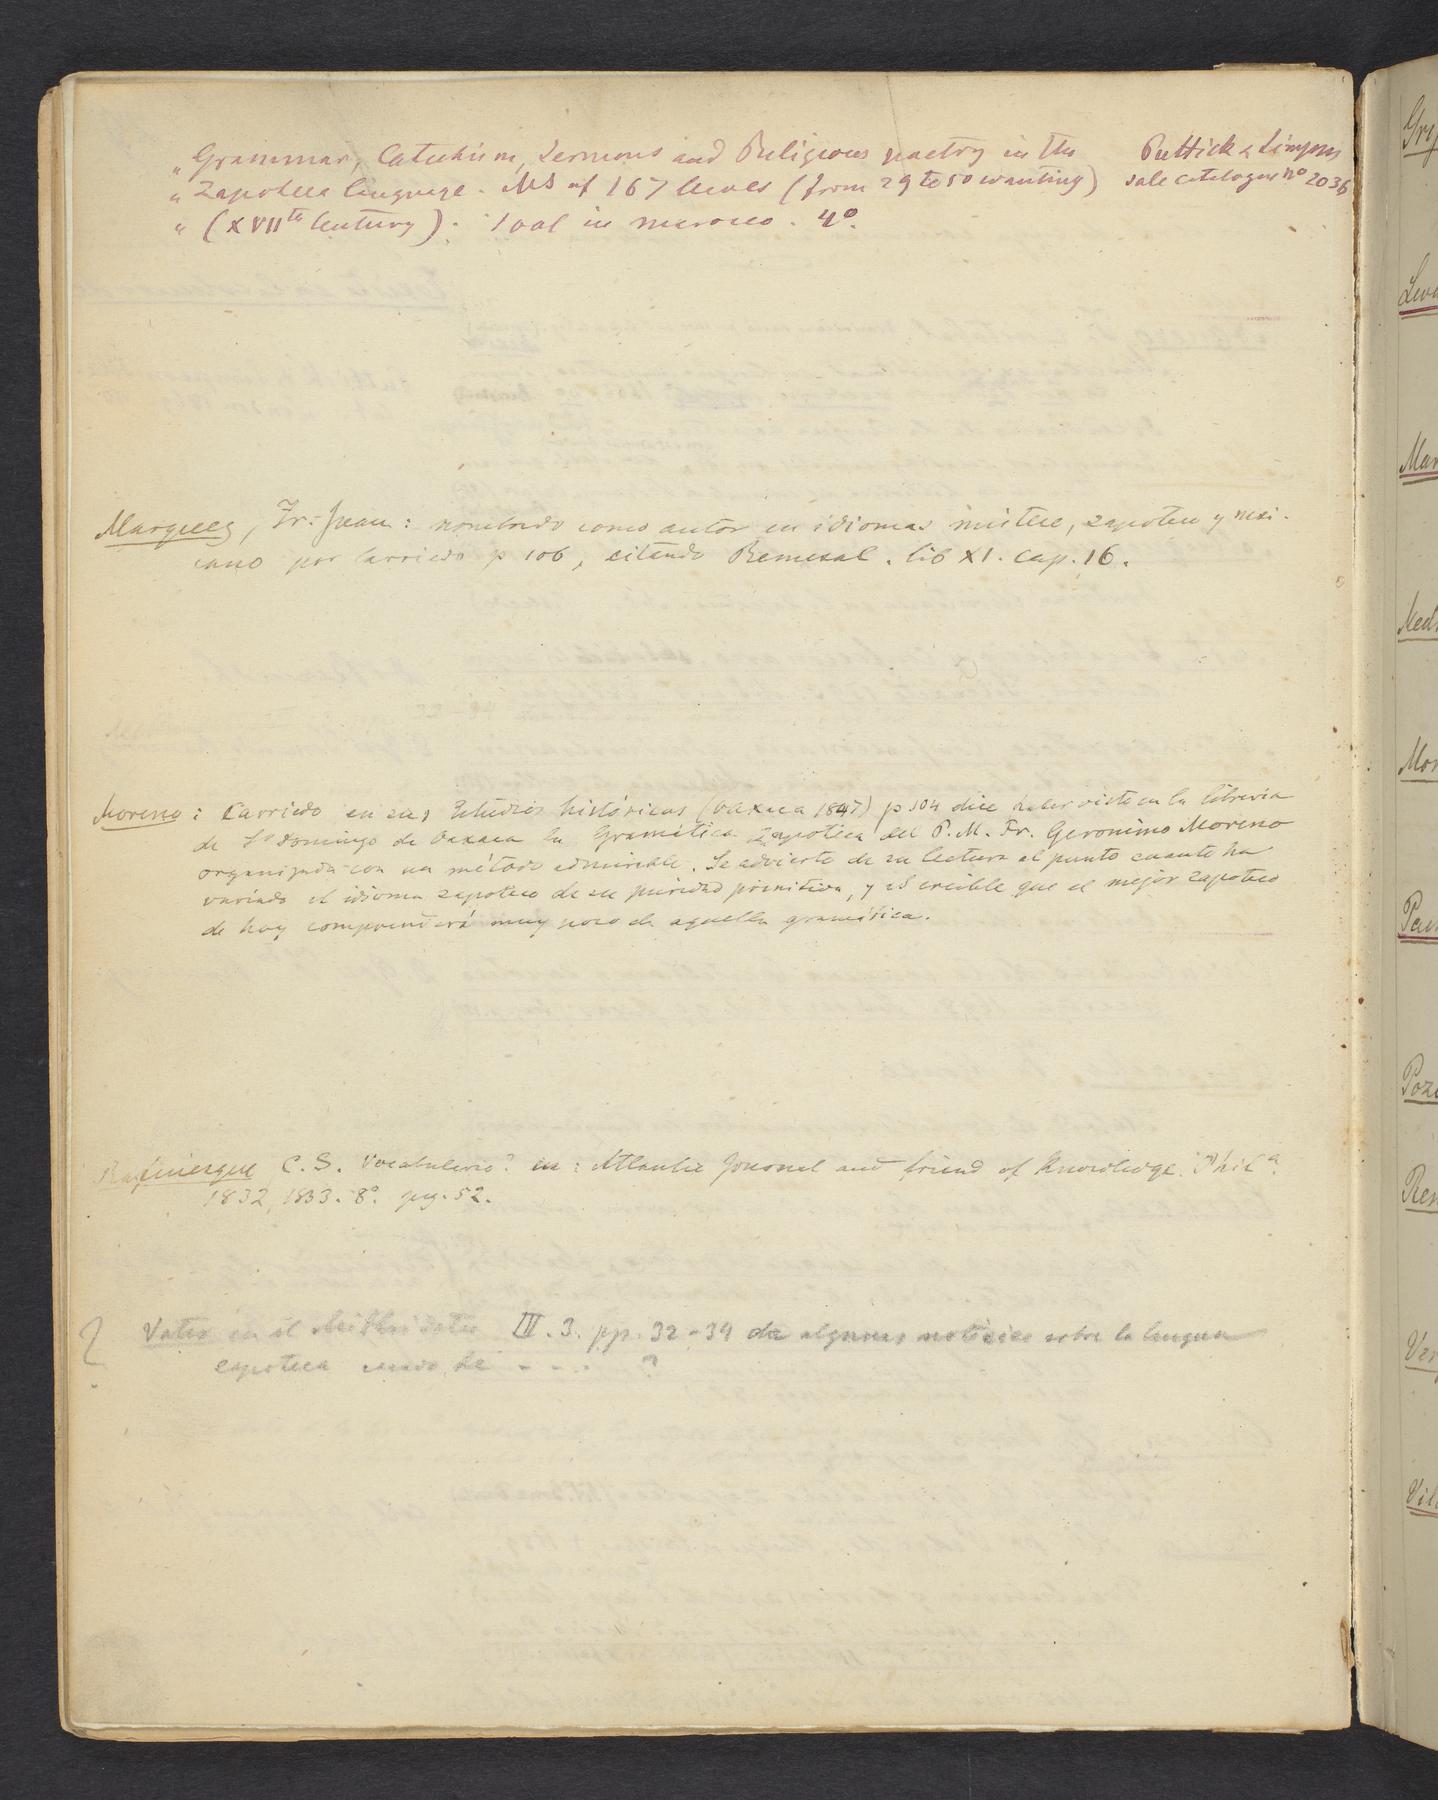 „ Grammar, Catechism, Sermons and Religious poetry in the Puttick & Simpson
„ Zapoteca language. MS of 167 leaves (from 29 to 50 wanting) sale catalogue nº 2036
„ (XVIIth Century). 1 vol in morocco. 4º.
Marquez, Fr. Juan: nombrado como autor en idiomas misteco, zapoteco y mexi-
cano por Carriedo p 106, citando Remesal. lib XI. cap. 16.
Moreno: Carriedo en sus Estudios históricos (Oaxaca 1847) p 104 dice haber visto en la libreria
de Sto Domingo de Oaxaca la Gramática Zapoteca del P. M. Fr. Geronimo Moreno
organizada con un método admirable. Se advierte de su lectura al punto cuanto ha
variado el idioma zapoteco de su puridad primitiva, y es creible que el mejor zapoteco
de hoy comprenderá muy poco de aquella gramática.
Rafinesque, C. S. Vocabulario? en: Atlantic Journal and friend of Knowledge. Phila.
1832, 1833. 8º. pg. 52.
? Vater en el Mithridates III. 3. pp. 32-39 da algunas noticias sobre la lengua
zapoteca - - - . ?
Gri
Mar
Medi
Mor
Poz
Ver